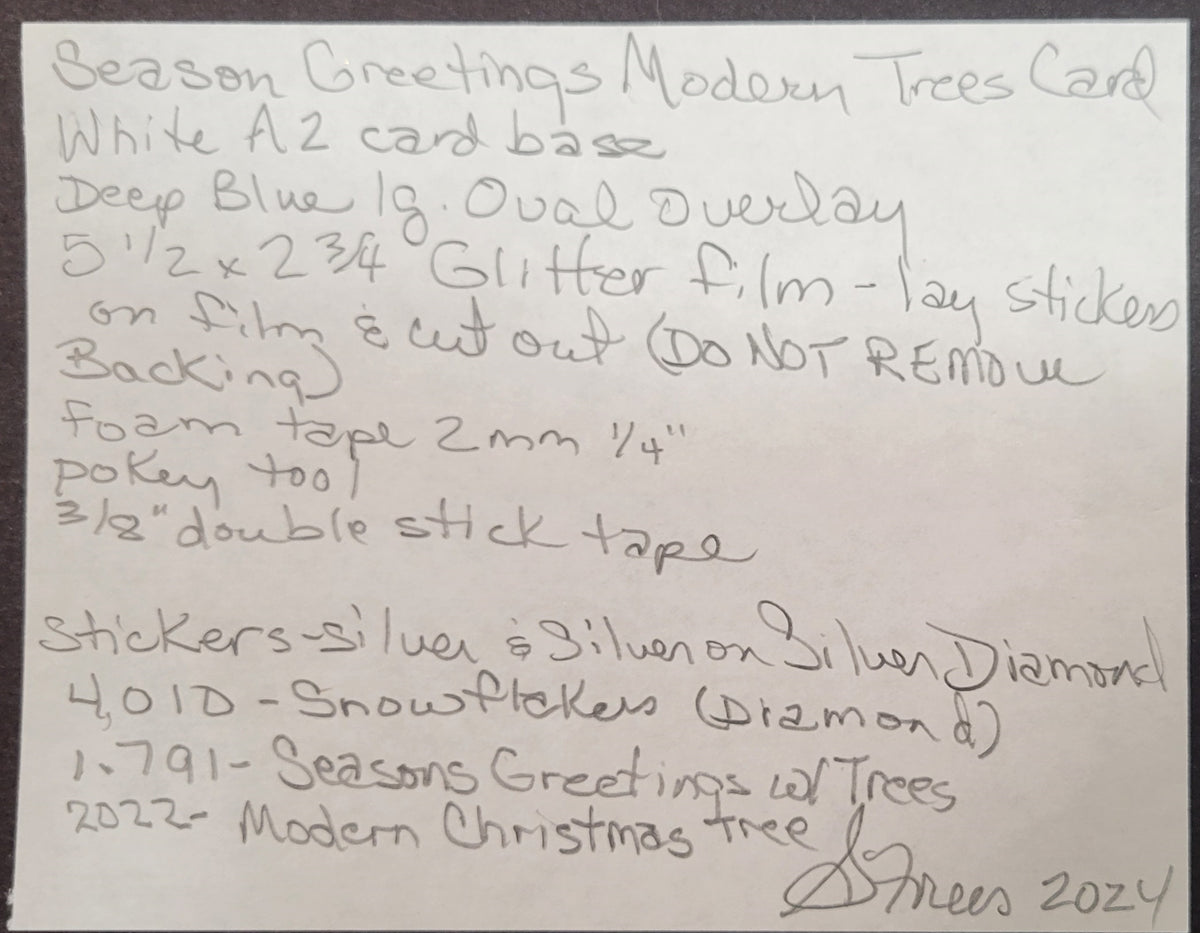 Season Greetings Modern Trees Card
White A2 card base
Deep Blue lg. Oval Overlay
5 1/2 x 2 3/4 Glitter film - lay stickers
on film & cut out (DO NOT REMOVE
Backing)
foam tape 2mm 1/4"
pokey tool
3/8" double stick tape
Stickers - silver & Silver on Silver Diamond
4,01D - Snowflakes (Diamond)
1.791 - Seasons Greetings w/ Trees
2022 - Modern Christmas tree
S Frees 2024